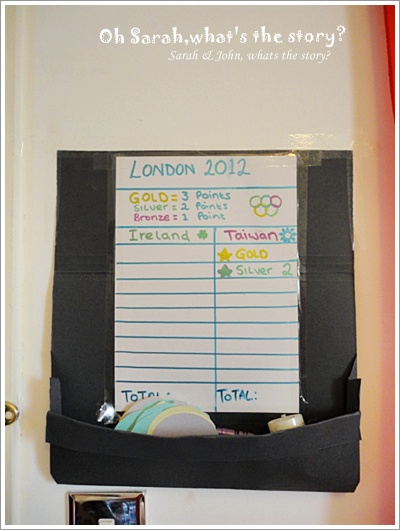 Oh Sarah,what's the story?
Sarah & John, whats the story?
LONDON 2012
GOLD = 3 Points
SILVER = 2 Points
Bronze = 1 Point
Ireland Taiwan
GOLD
Silver 2
TOTAL: TOTAL: